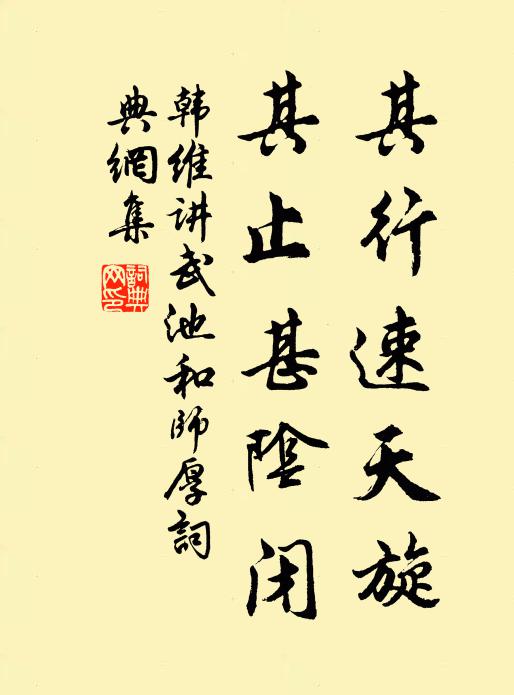 其行速天旋
其止甚陰闭
韩维讲武池和师厚詞
典網集
詞典网印